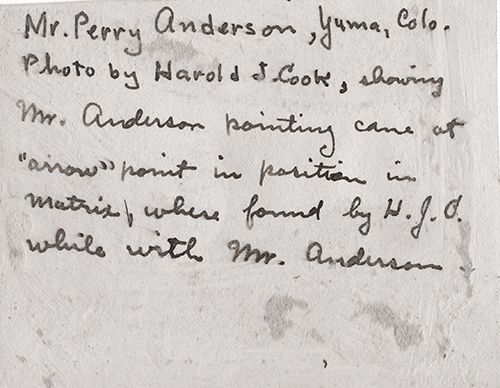 Mr. Perry Anderson, Yuma, Colo.
Photo by Harold J. Cook, showing
Mr. Anderson pointing cane at
"arrow" point in position in
matrix, where found by H. J. C.
while with Mr. Anderson.